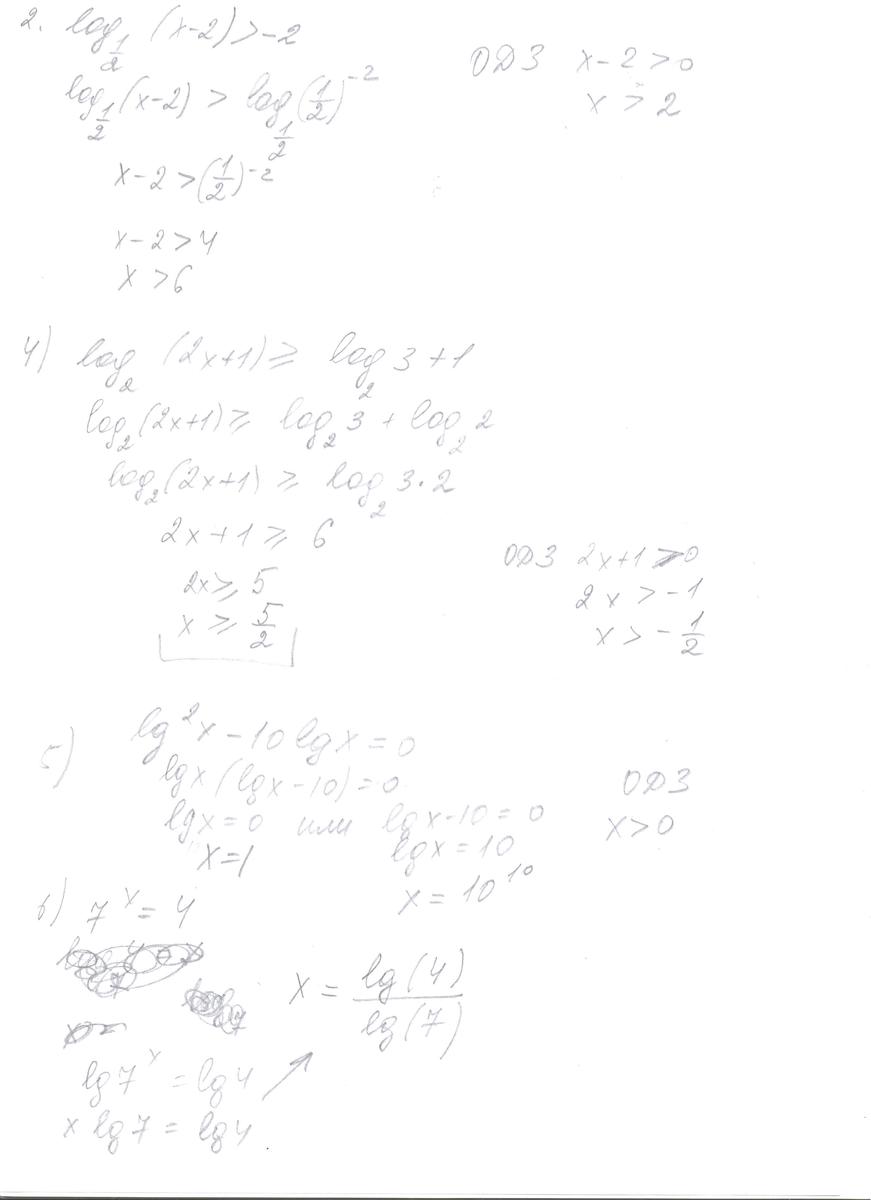 2. log_{1/2} (x-2) > -2
ОДЗ x-2>0
x > 2
log_{1/2} (x-2) > log_{1/2} (1/2)^{-2}
x-2 > (1/2)^{-2}
x-2 > 4
x > 6
4) log_2 (2x+1) ⩾ log_2 3 + 1
log_2 (2x+1) ⩾ log_2 3 + log_2 2
log_2 (2x+1) ⩾ log_2 3·2
2x+1 ⩾ 6
2x ⩾ 5
x ⩾ 5/2
ОДЗ 2x+1 > 0
2x > -1
x > -1/2
5) lg^2 x - 10 lg x = 0
lg x (lg x - 10) = 0
lg x = 0 или lg x - 10 = 0
x = 1
lg x = 10
x = 10^{10}
ОДЗ
x > 0
6) 7^x = 4
x = lg(4)/lg(7)
lg 7^x = lg 4
x lg 7 = lg 4